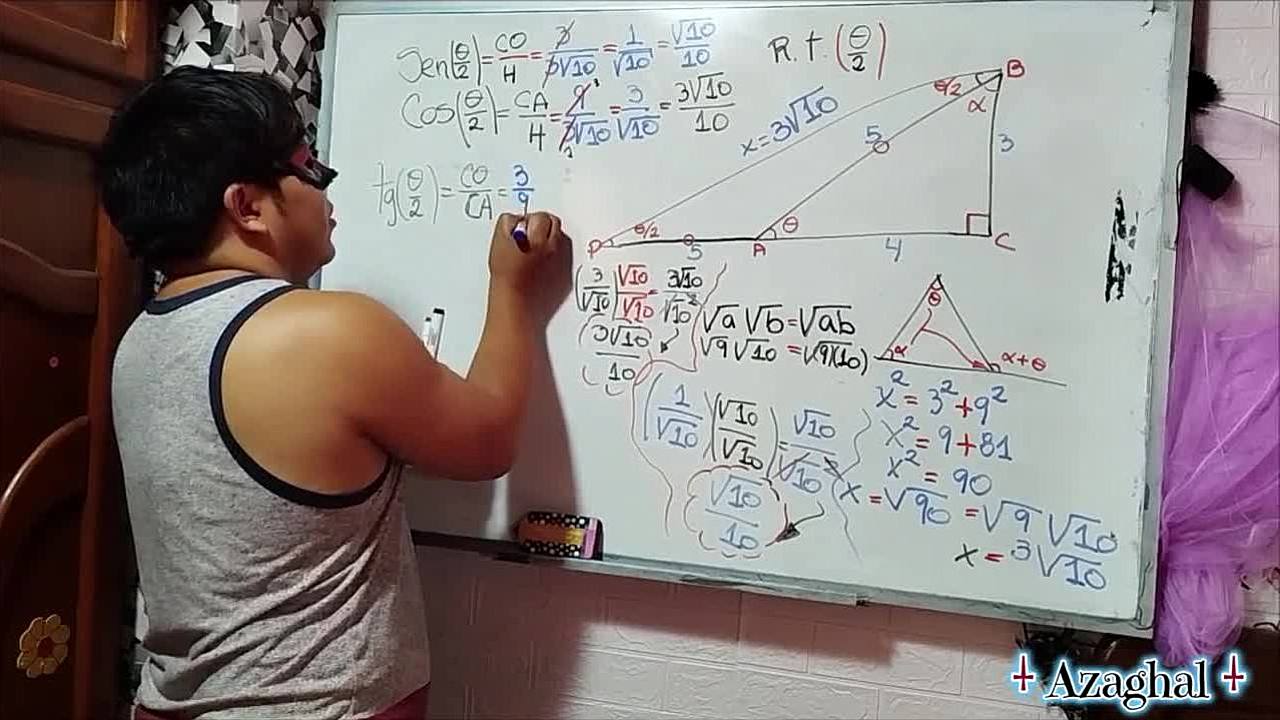 Sen(θ/2) = CO/H = 3/3√10 = 1/√10 = √10/10
Cos(θ/2) = CA/H = 9/3√10 = 3/√10 = 3√10/10
tg(θ/2) = CO/CA = 3/9
R.t.(θ/2)
B
θ/2
α
x=3√10
5
3
P
θ/2
5
A
θ
4
C
(3/√10)(√10/√10) = 3√10/√10²
3√10/10
√a √b = √ab
√9 √10 = √(9)(10)
θ
α
α+θ
(1/√10)(√10/√10) = √10/√10²
√10/10
x² = 3²+9²
x² = 9+81
x² = 90
x = √90 = √9 √10
x = 3√10
Azaghal